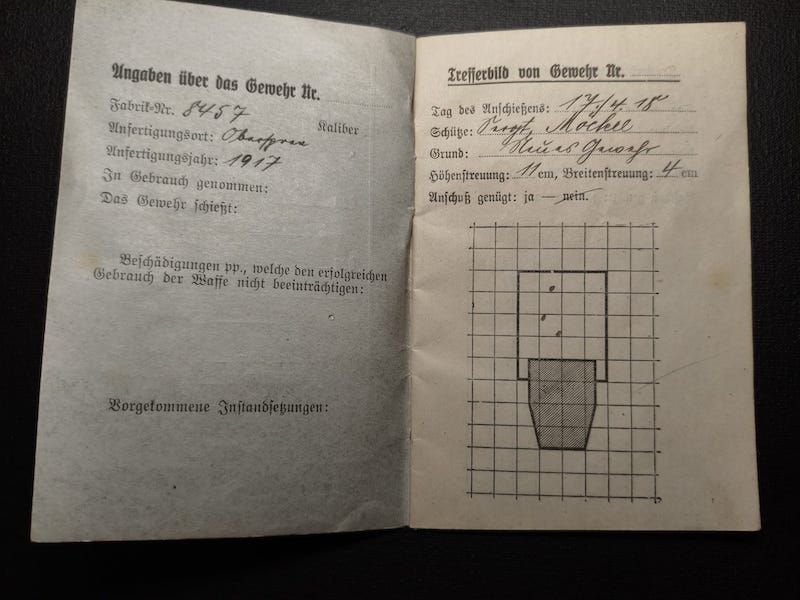 Angaben über das Gewehr Nr.
Fabrik-Nr. 8457
Kaliber
Anfertigungsort: Oberspree
Anfertigungsjahr: 1917
In Gebrauch genommen:
Das Gewehr schießt:
Beschädigungen pp., welche den erfolgreichen
Gebrauch der Waffe nicht beeinträchtigen:
Vorgekommene Instandsetzungen:
Trefferbild von Gewehr Nr.
Tag des Anschießens: 17./4. 18
Schütze: Sergt. Möckel
Grund: Neues Gewehr
Höhenstreuung: 11 cm, Breitenstreuung: 4 cm
Anschuß genügt: ja — nein.